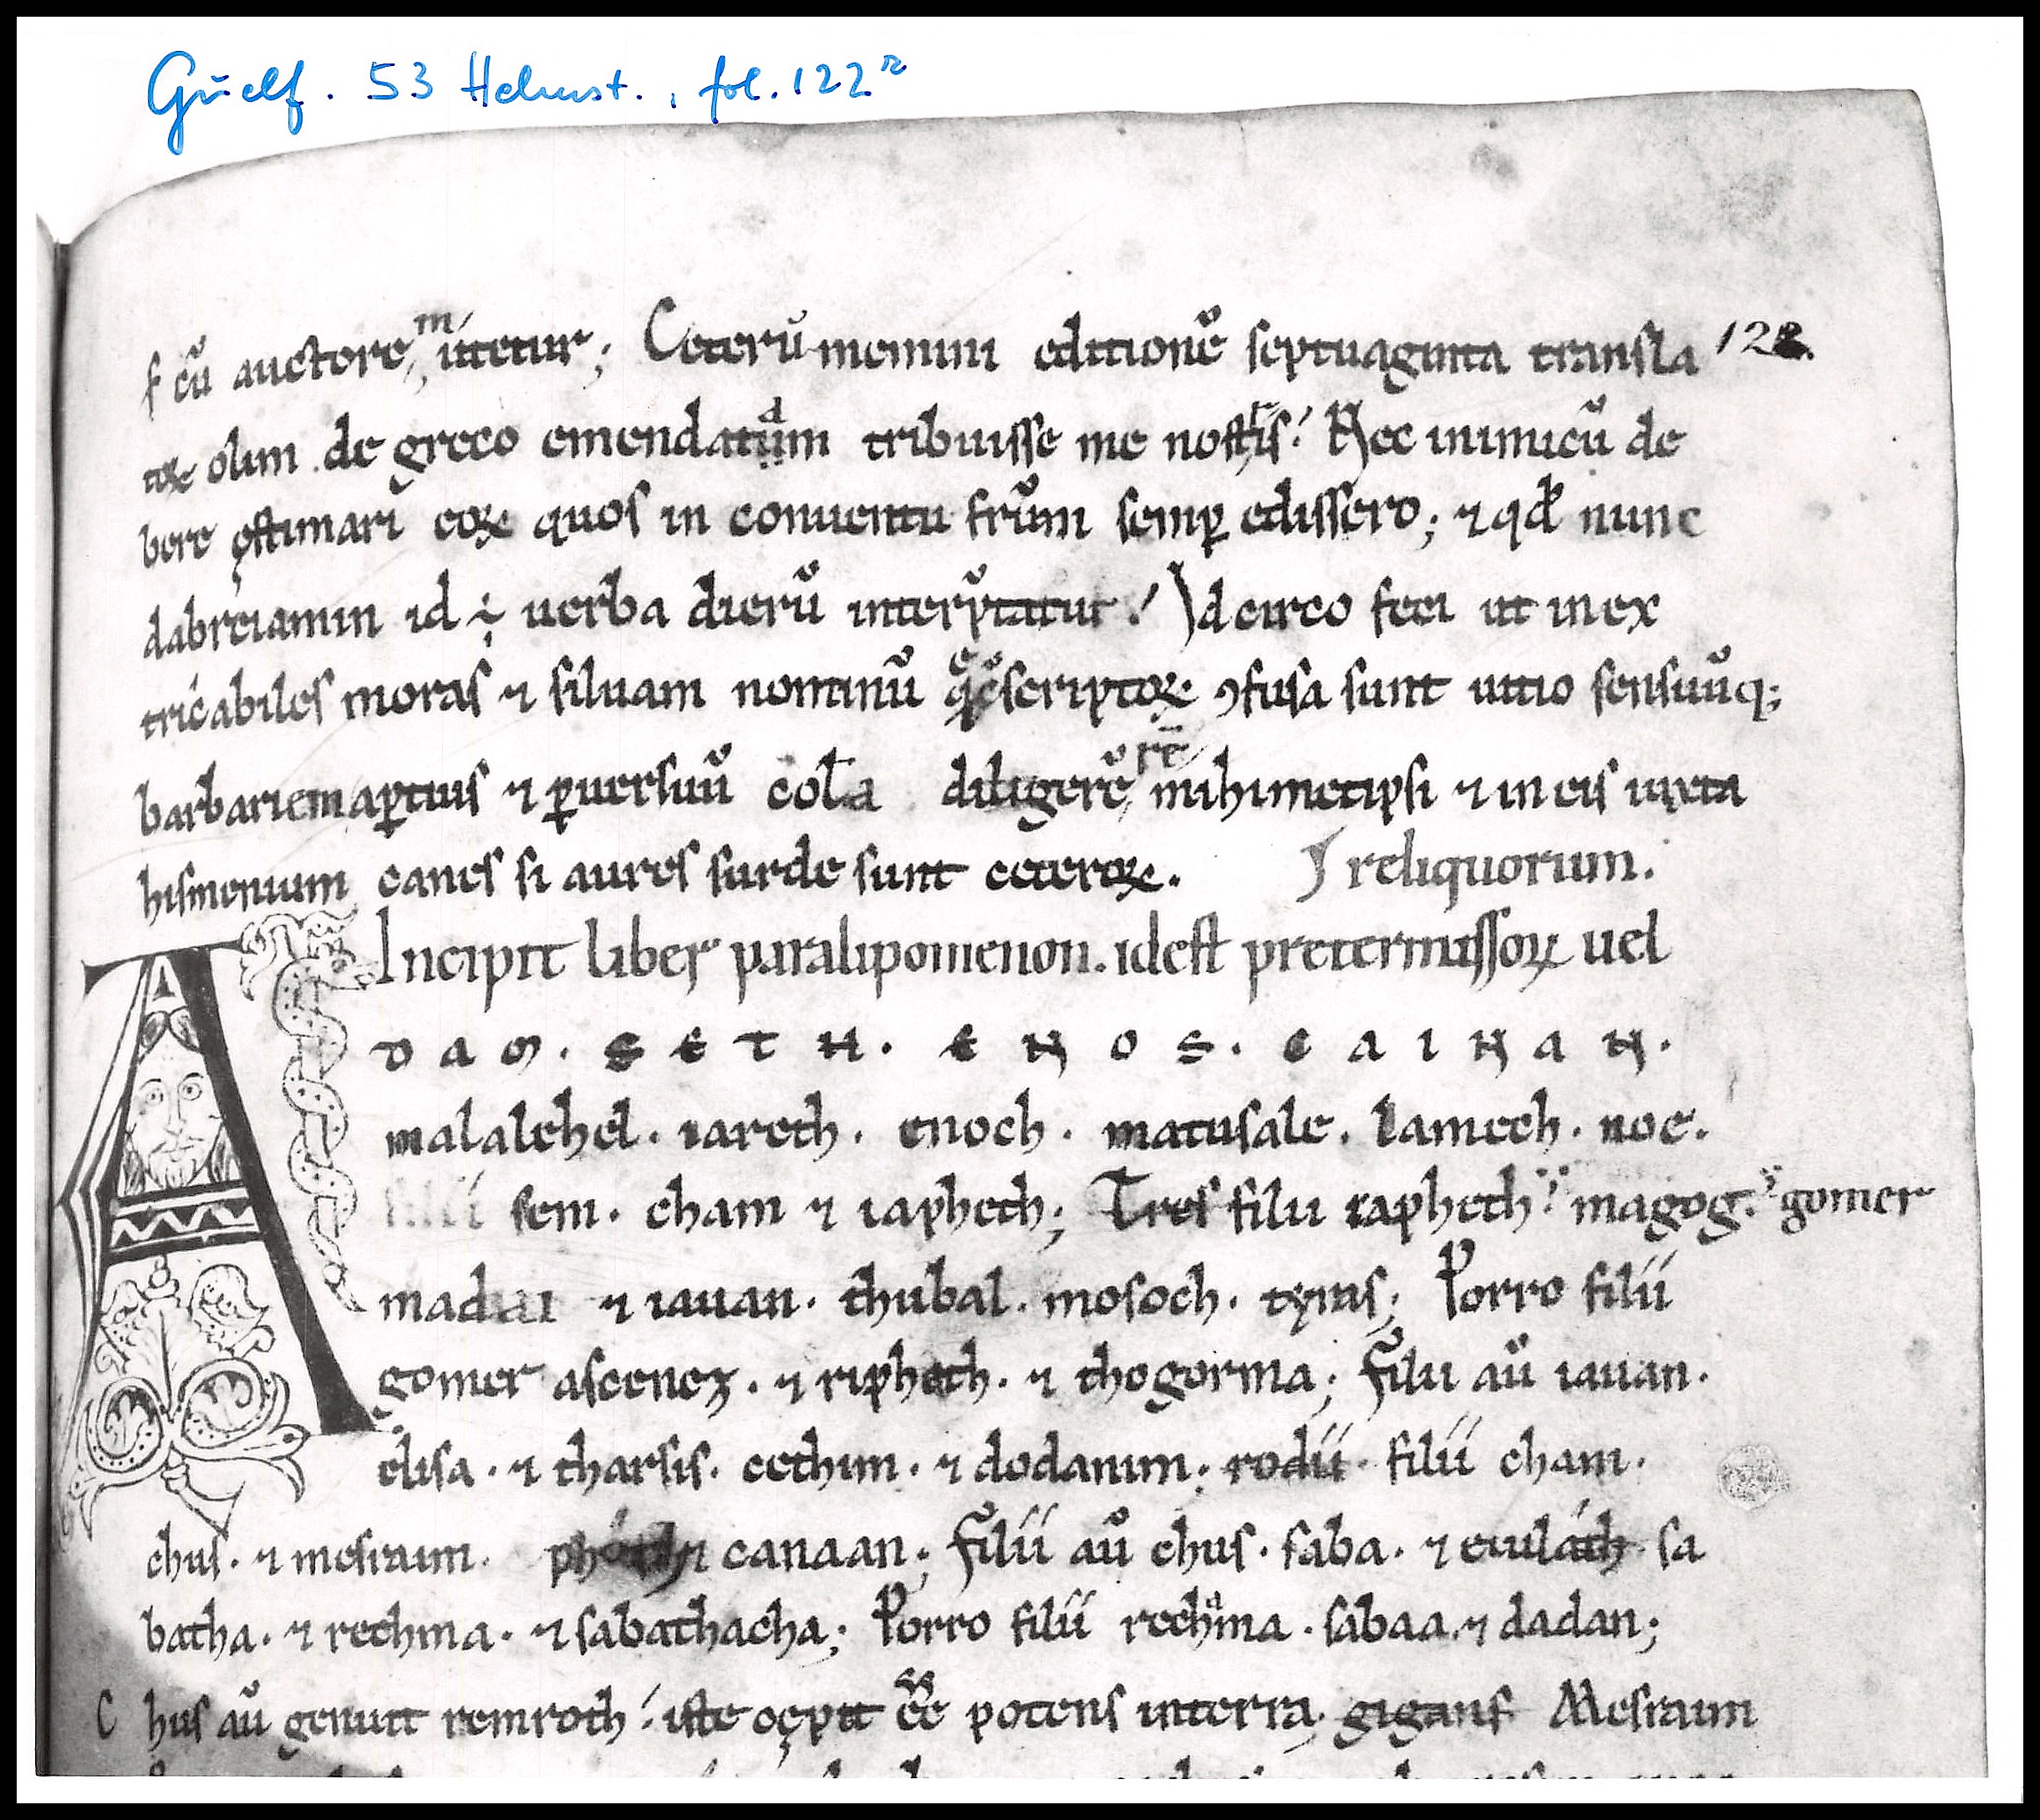 Guelf. 53 Helmst., fol. 122r
ſ cū auctorem utetur; Ceterū memini editionē ſeptuaginta tranſla 122.
toꝝ olim de greco emendatam tribuiſſe me noſtriſ! Nec inimicū de
bere ęſtimari eoꝝ quoſ in conuentu frūm ſemꝑ ediſſero; ⁊ qđ nunc
dabreiamin id ÷ uerba dierū interp̄tatur! Idcirco feci ut inex
tricabileſ moraſ ⁊ ſiluam nominū que ſcriptoꝝ ꝯfuſa ſunt uitio ſenſuūq;
barbariem aꝑtiuſ ⁊ ꝑ uerſuū cola digererē mihimetipſi ⁊ in eiſ iuxta
hiſmenium caneſ ſi aureſ ſurde ſunt ceteroꝝ. reliquorum.
Incipit liber paralipomenon. ideſt pretermiſſoꝝ uel
A DAM. SETH. ENOS. CAINAN.
malalehel. iareth. enoch. matuſale. lamech. noe.
filii ſem. cham ⁊ iapheth; Treſ filii iapheth! magog. gomer
madiai ⁊ iauan. thubal. moſoch. tyraſ; Porro filii
gomer aſcenez. ⁊ ripheth. ⁊ thogorma; Filii aū iauan.
eliſa. ⁊ tharſiſ. cethim. ⁊ dodanim; rodii. filii cham.
chuſ. ⁊ meſraim. ⁊ canaan; Filii aū chuſ. ſaba. ⁊ euilath. ſa
batha. ⁊ rechma. ⁊ ſabathacha; Porro filii rechma. ſabaa. ⁊ dadan;
C huſ aū genuit nemroth! iſte cępit ēē potenſ in terra; giganſ Meſraim